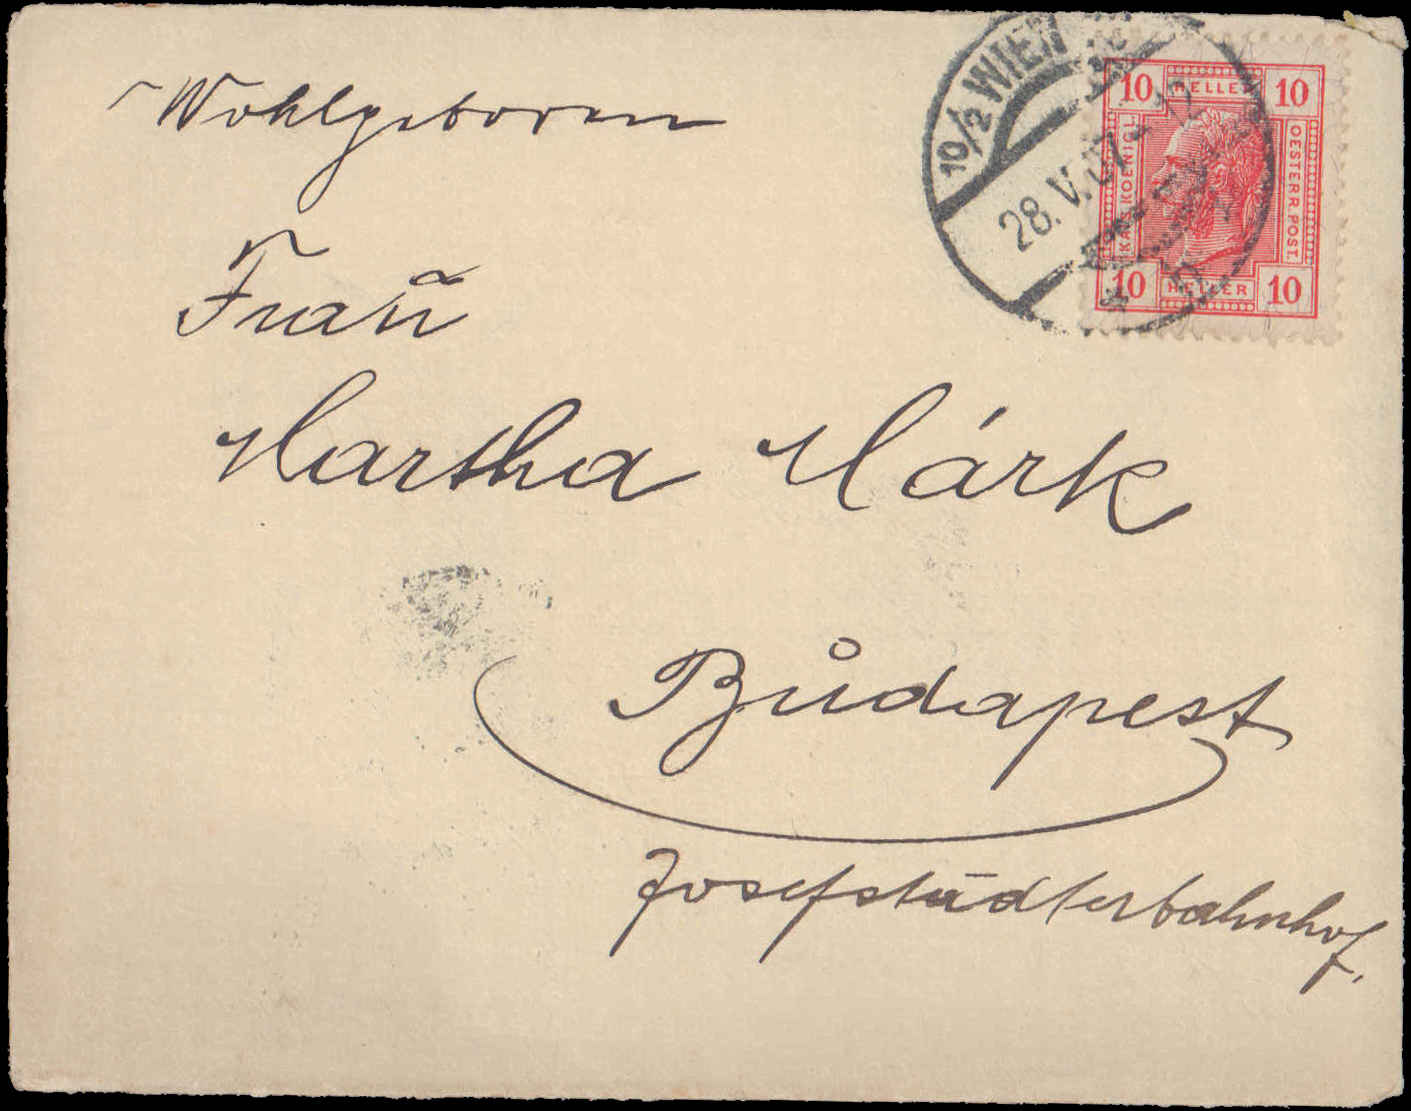 Wohlgeboren
Frau
Martha Márk
Budapest
Josefstädterbahnhof.
10/2 WIEN
28.V.07
10 HELLER 10
KAIS. KOENIGL.
OESTERR. POST.
10 HELLER 10